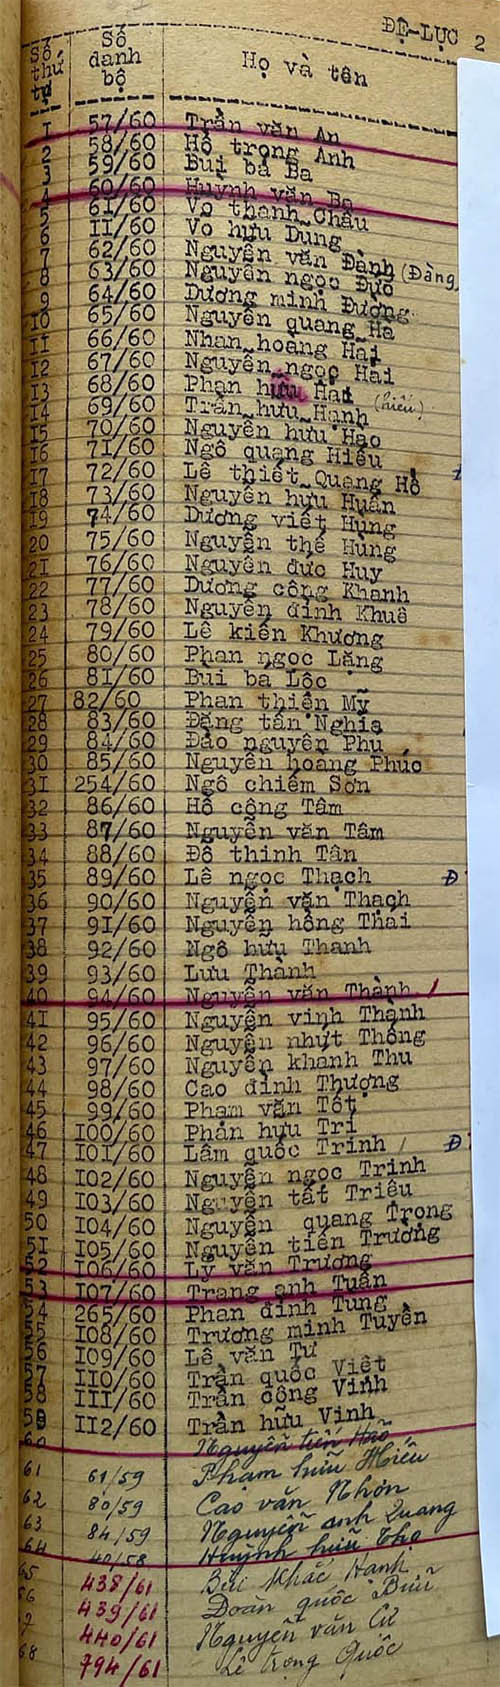 ĐỆ-LỤC 2
Số thứ tự | Số danh bộ | Họ và tên
1 57/60 Trần văn An
2 58/60 Hồ trọng Anh
3 59/60 Bùi bá Ba
4 60/60 Huỳnh văn Ba
5 61/60 Võ thanh Châu
6 II/60 Võ hữu Dung
7 62/60 Nguyễn văn Đành (Đàng)
8 63/60 Nguyễn ngọc Đức
9 64/60 Dương minh Đường
10 65/60 Nguyễn quang Hà
11 66/60 Nhan hoàng Hải
12 67/60 Nguyễn ngọc Hải
13 68/60 Phan hữu Hải
14 69/60 Trần hữu Hạnh (hiếu)
15 70/60 Nguyễn hữu Hạo
16 71/60 Ngô quang Hiếu
17 72/60 Lê thiết Quang Hổ
18 73/60 Nguyễn hữu Huân
19 74/60 Dương viết Hùng
20 75/60 Nguyễn thế Hùng
21 76/60 Nguyễn đức Huy
22 77/60 Dương công Khanh
23 78/60 Nguyễn đình Khuê
24 79/60 Lê kiến Khương
25 80/60 Phan ngọc Lặng
26 81/60 Bùi bá Lộc
27 82/60 Phan thiện Mỹ
28 83/60 Đặng tấn Nghĩa
29 84/60 Đào nguyên Phu
30 85/60 Nguyễn hoàng Phúc
31 254/60 Ngô chiêm Sơn
32 86/60 Hồ công Tâm
33 87/60 Nguyễn văn Tâm
34 88/60 Đỗ thinh Tân
35 89/60 Lê ngọc Thạch Đ
36 90/60 Nguyễn văn Thạch
37 91/60 Nguyễn hồng Thái
38 92/60 Ngô hữu Thanh
39 93/60 Lưu Thành
40 94/60 Nguyễn văn Thành
41 95/60 Nguyễn vinh Thành
42 96/60 Nguyễn nhựt Thống
43 97/60 Nguyễn khánh Thu
44 98/60 Cao đình Thượng
45 99/60 Phạm văn Tốt
46 100/60 Phan hữu Trí
47 101/60 Lâm quốc Trinh Đ
48 102/60 Nguyễn ngọc Trinh
49 103/60 Nguyễn tất Triêu
50 104/60 Nguyễn quang Trọng
51 105/60 Nguyễn tiến Trường
52 106/60 Lý văn Trương
53 107/60 Trang anh Tuấn
54 265/60 Phan đình Tùng
55 108/60 Trương minh Tuyền
56 109/60 Lê văn Tư
57 110/60 Trần quốc Việt
58 111/60 Trần công Vinh
59 112/60 Trần hữu Vinh
60 Nguyễn tiến Hảo
61 61/59 Phạm hữu Hiếu
62 80/59 Cao văn Nhơn
63 84/59 Nguyễn anh Quang
64 40/58 Huỳnh hữu Thọ
65 438/61 Bùi khắc Hanh
66 439/61 Đoàn quốc Bửu
440/61 Nguyễn văn Cư
68 794/61 Lê trọng Quốc